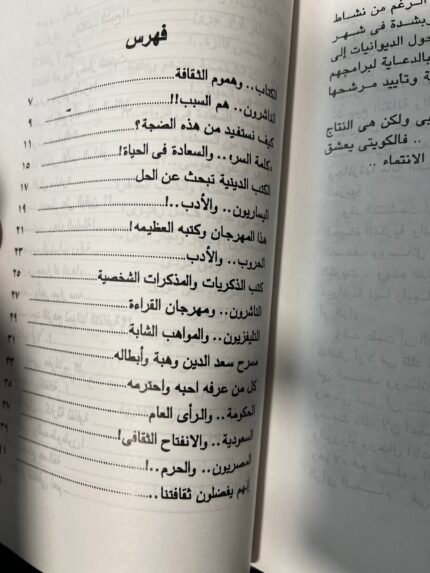 فهرس
الكتاب.. وهموم الثقافة ٧
الناشرون.. هم السبب!! ٩
كيف نستفيد من هذه الضجة؟ ١١
كلمة السر».. والسعادة فى الحياة! ١٥
الكتب الدينية تبحث عن الحل ١٧
اليساريون.. والأدب..! ١٩
هذا المهرجان وكتبه العظيمه! ٢١
الحروب.. والأدب ٢٣
كتب الذكريات والمذكرات الشخصية ٢٥
الناشرون.. ومهرجان القراءة ٢٧
التليفزيون.. والمواهب الشابة ٢٩
مسرح سعد الدين وهبة وأبطاله ٣١
كل من عرفه احبه واحترمه ٣٣
الحكومة.. والرأى العام ٣٥
السعودية.. والانفتاح الثقافى! ٣٧
المصريون.. والحرم..! ٣٩
أنهم يفضلون ثقافتنا..
الرغم من نشاط
شهر
حول الديوانيات إلى
بالدعاية لبرامجهم
وتأييد مرشحها
ولكن هى النتاج
.. فالكويتى يعشق
الانتماء ..